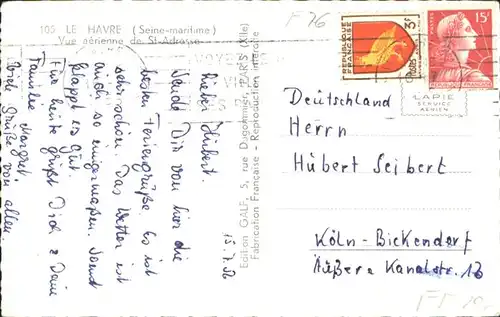 105 LE HAVRE (Seine-maritime)
Vue aérienne de St-Adresse
F 76
15.7.56
Lieber Hubert.
Sende Dir von hier die
besten Feriengrüße. Es ist
sehr schön. Das Wetter ist
auch so einigermaßen. Sonst
klappt es gut.
Für heute grüßt Dich & Deine
Familie Margret.
Viele Grüße von allen.
Edition GALF, 5, rue Dugommier, PARIS (XIIe)
Fabrication Française - Reproduction interdite
REPUBLIQUE FRANÇAISE
3F
POSTES
15F
LAPIE
SERVICE
AERIEN
Deutschland
Herrn
Hubert Seibert
Köln-Bickendorf
Äußere Kanalstr. 13